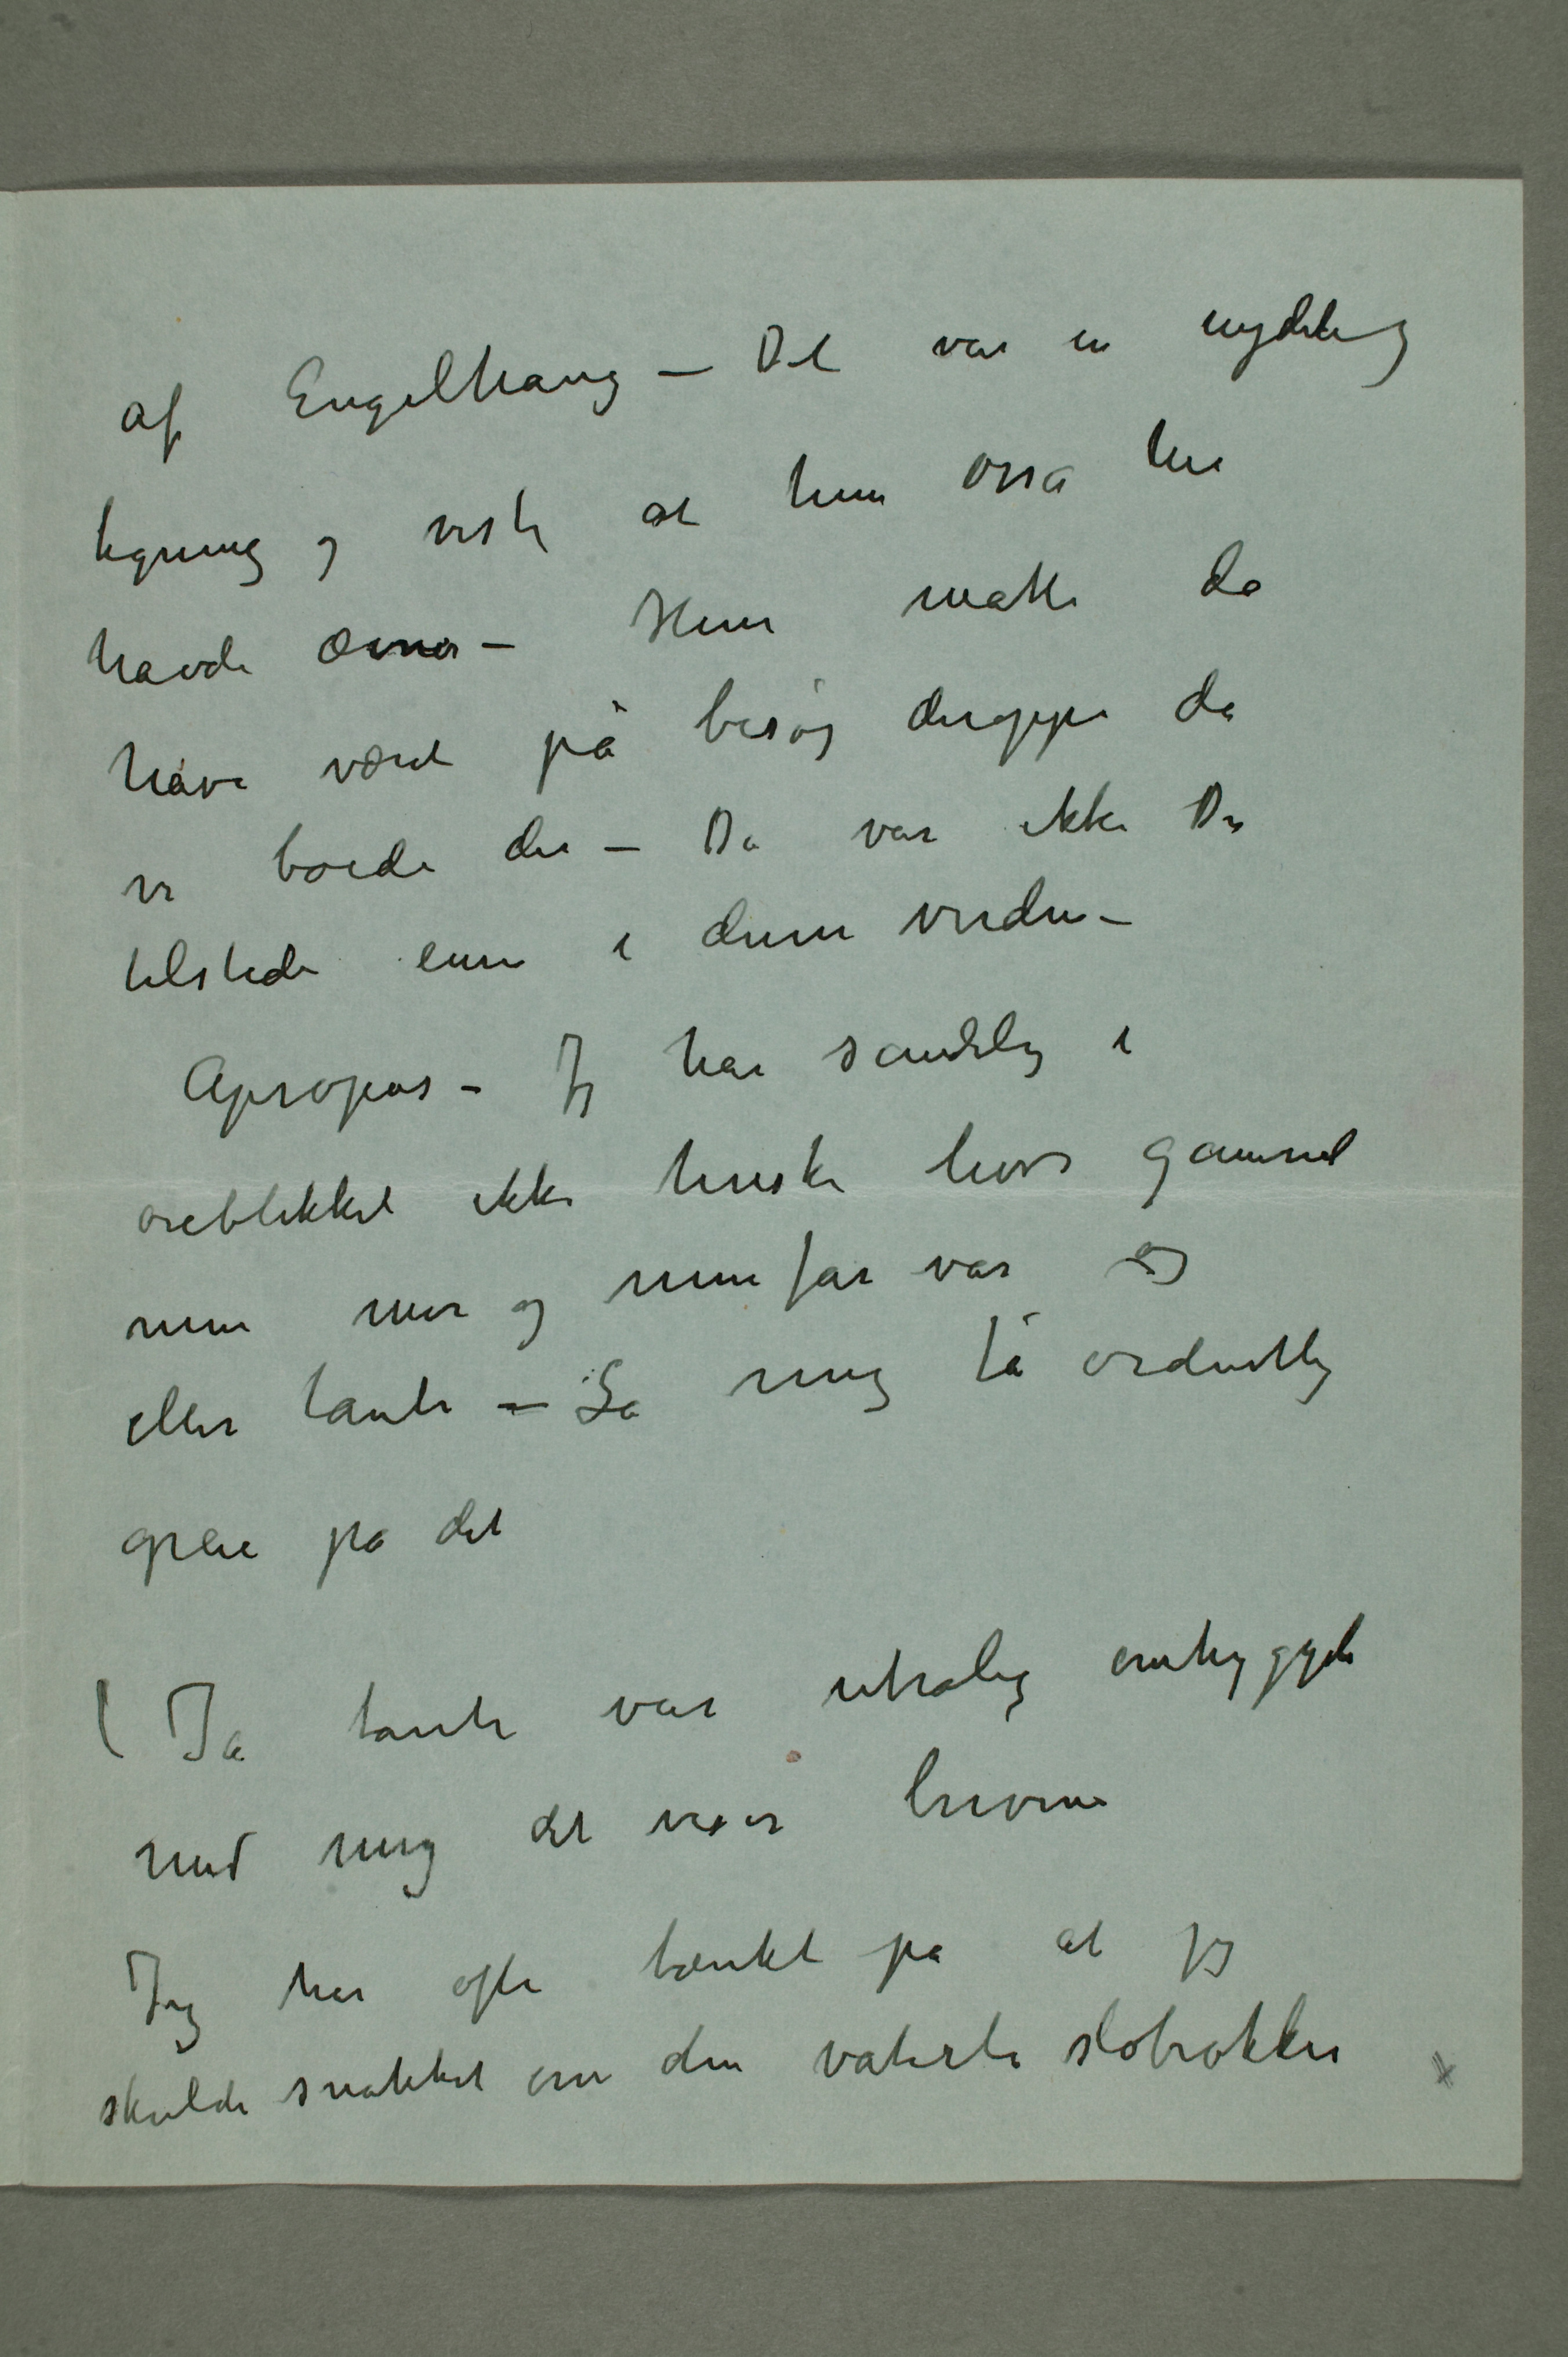 af Engelhaug – Det var en nydelig
tegning og viste at hun osså her
havde ævner – Hun måtte da
have vært på besøg deroppe da
vi boede der – Da var ikke De
tilstede enn i denne verden –
Apropos – Jeg har sandelig i
øieblikket ikke huske hvor gammel
min mor og min far var og
eller tante – La mig få ordentlig
greie på det
( Ja tante var utrolig omhyggeli
med mig det viser brevene
Jeg har ofte tænkt på at jeg
skulde snakket om den vaterte slobrokken x